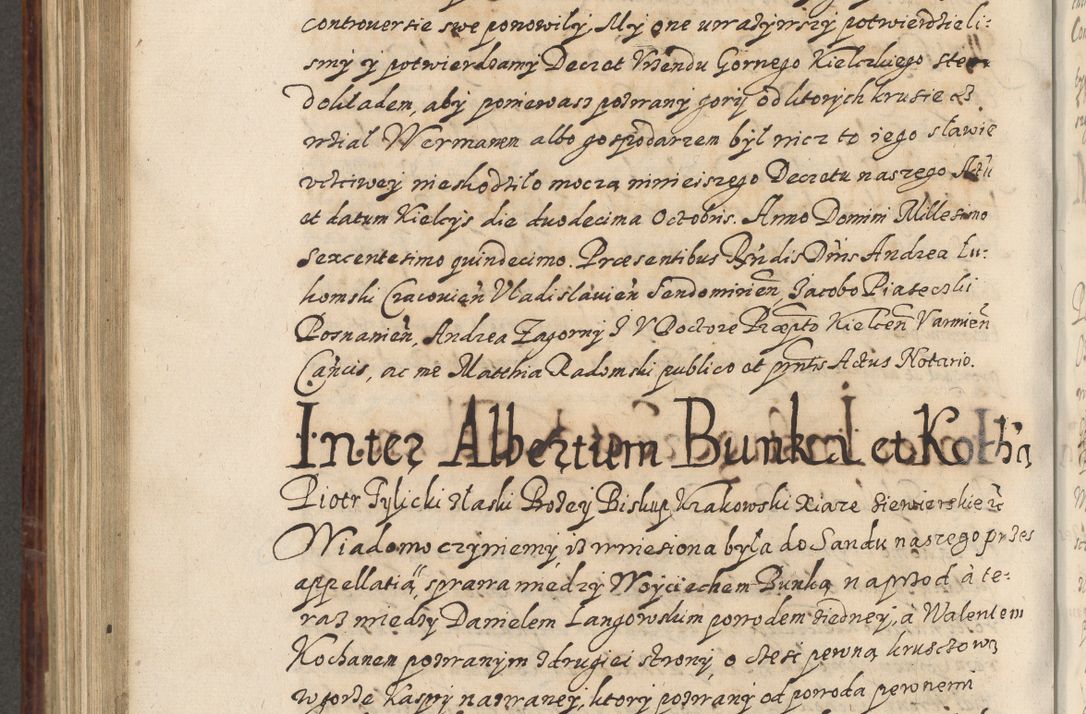 controuersie swe ponowily, My one uwazywszy potwierdzieli:
smy y potwierdzamy Decret Vrzendu Gornego Kielczkiego stem
dokladem, aby poniewasz pozwany gory od ktorych krusiec
wzial Wermanem albo gospodarzem był nicz to iego sławie
vcztiwey nieskodziło moczą ninieiszego Decretu naszego Actū
et datum Kielcys die duodecima Octobris. Anno Domini Millesimo
Sexcentesimo quindecimo. Præsentibus Rn̄dis Dn̄is Andrea Lu:
komski Cracovień Vladislavień Sendomirień, Jacobo Piaseczki
Posnanień, Andrea Zagorny I V Doctore Præpto Kielceń Varmień
Cań̄cis, ac me Matthia Radomski publico et pn̄tis Actus Notario.
Inter Albertum Bunka et Kocha
Piotr Tylicki złaski Bozey Biskup Krakowski Xiąze Siewierskie
Wiadomo czyniemy, iz wniesiona była do Sandu naszego przes
appellatią, sprawa miedzy Woyciechem Bunką naprzod à te:
raz miedzy Danielem Langowskim powodem ziedney, à Walentem
Kochanem pozwanym zdrugiei strony, o część pewną krusczową
w gorze Kaspry nazwaney, ktory pozwany od powoda pewnem